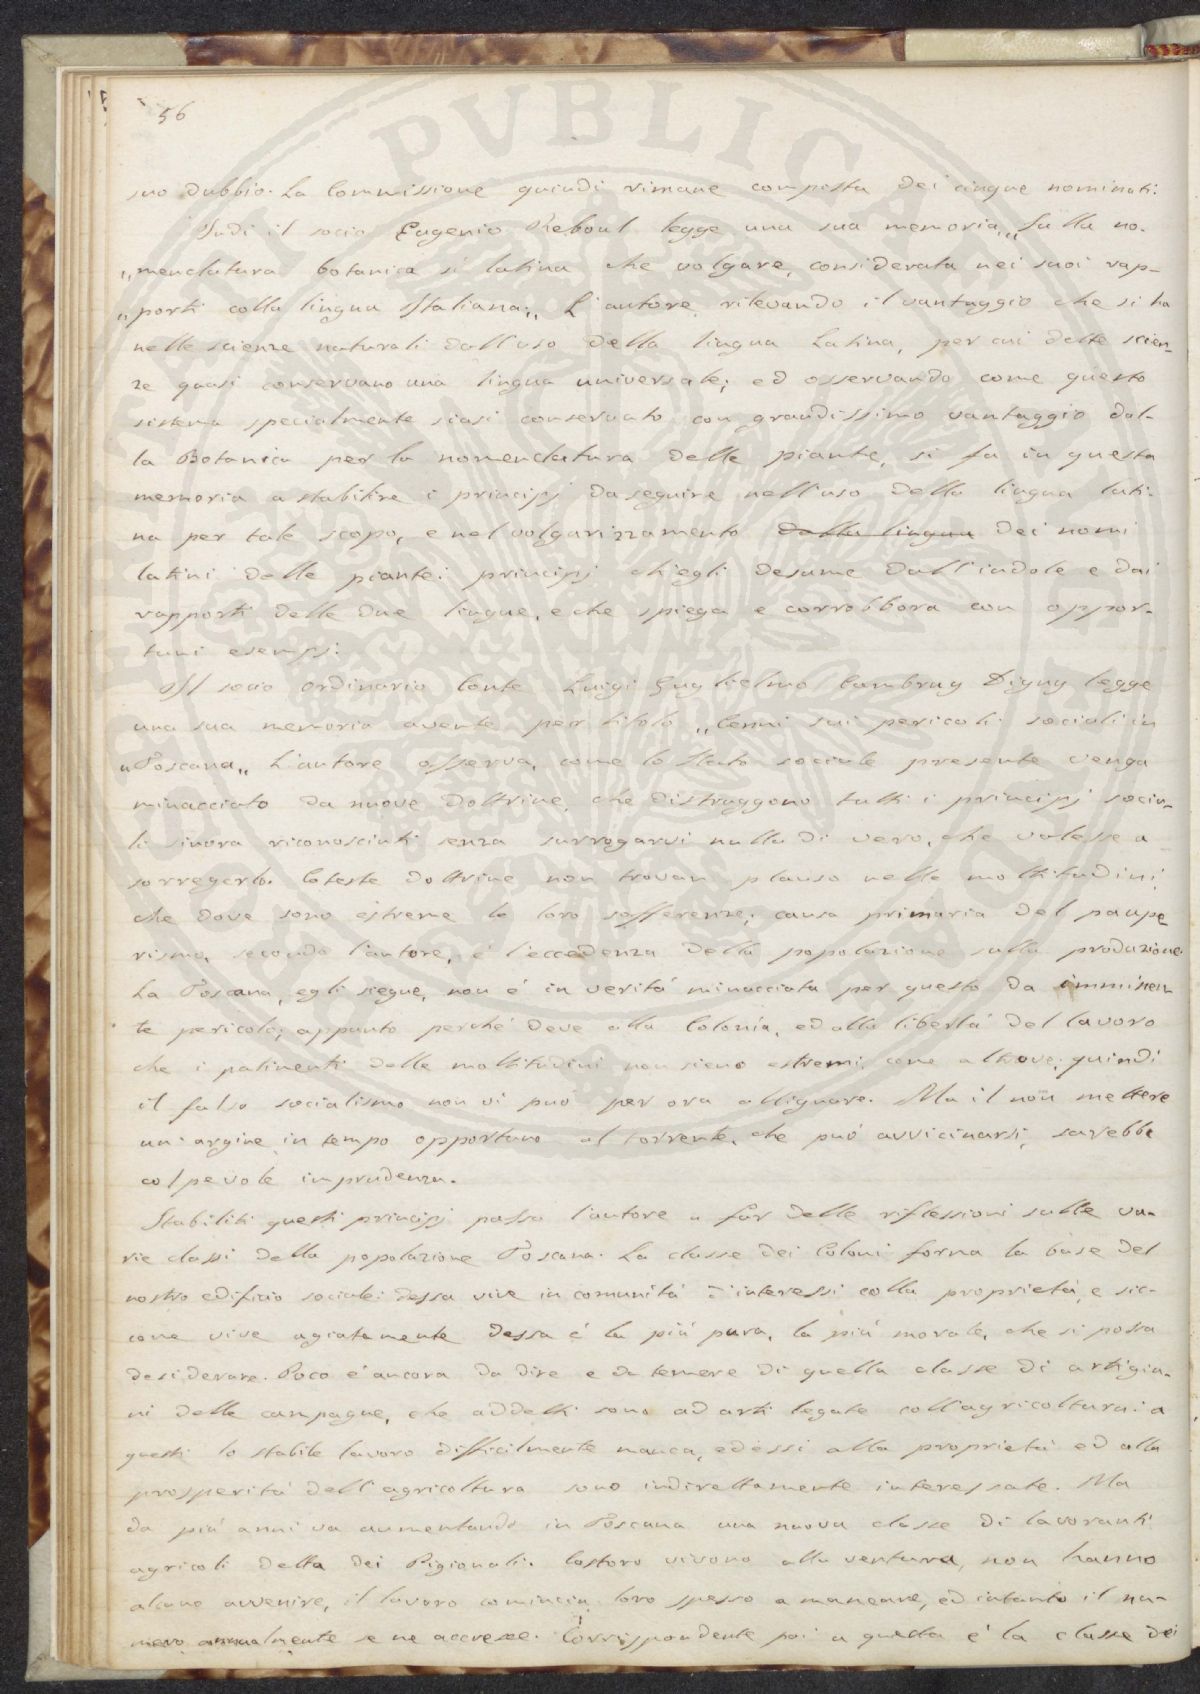 56
suo dubbio. La Commissione quindi rimane composta dei cinque nominati.
Indi il socio Eugenio Reboul legge una sua memoria „Sulla no-
„menclatura botanica sì latina che volgare, considerata nei suoi rap-
„porti colla lingua Italiana;„ L'autore rilevando il vantaggio che si ha
nelle scienze naturali dall'uso della lingua Latina, per cui dette scien-
ze quasi conservano una lingua universale; ed osservando come questo
sistema specialmente siasi conservato con grandissimo vantaggio dal-
la Botanica per la nomenclatura delle piante, si fa in questa
memoria a stabilire i principj da seguire nell'uso della lingua lati-
na per tale scopo, e nel volgarizzamento della lingua dei nomi
latini delle piante: principj ch'egli desume dall'indole e dai
rapporti delle due lingue, e che spiega e corrobbora con oppor-
tuni esempj.
Il socio ordinario Conte Luigi Guglielmo Cambray Digny legge
una sua memoria avente per titolo „Cenni sui pericoli sociali in
„Toscana„ L'autore osserva, come lo Stato sociale presente venga
minacciato da nuove dottrine, che distruggono tutti i principj socia-
li sinora riconosciuti senza surrogarvi nulla di vero, che valesse a
sorregerlo. Coteste dottrine non trovan plauso nelle moltitudini,
che dove sono estreme le loro sofferenze; causa primaria del paupe
rismo, secondo l'autore, è l'eccedenza della popolazione sulla produzione.
La Toscana, egli siegue, non è in verità minacciata per questo da imminen-
te pericolo; appunto perché deve alla Colonia, ed alla libertà del lavoro
che i patimenti delle moltitudini non sieno estremi come altrove; quindi
il falso socialismo non vi può per ora allignare. Ma il non mettere
un argine in tempo opportuno al torrente, che può avvicinarsi, sarebbe
colpevole imprudenza.
Stabiliti questi principj passa l'autore a far delle riflessioni sulle va-
rie classi della popolazione Toscana. La classe dei Coloni forma la base del
nostro edificio sociale: dessa vive in comunità d'interessi colla proprietà, e sic-
come vive agiatamente dessa è la più pura, la più morale, che si possa
desiderare. Poco è ancora da dire e da temere di quella classe di artigia-
ni delle campagne, che addetti sono ad arti legate coll'agricoltura: a
questi lo stabile lavoro difficilmente manca, ed essi alla proprietà ed alla
prosperità dell'agricoltura sono indirettamente interessate. Ma
da più anni va aumentando in Toscana una nuova classe di lavoranti
agricoli detta dei Pigionali. Costoro vivono alla ventura, non hanno
alcuno avvenire, il lavoro comincia loro spesso a mancare, ed intanto il nu-
mero annualmente se ne accresce. Corrispondente poi a questa è la classe dei